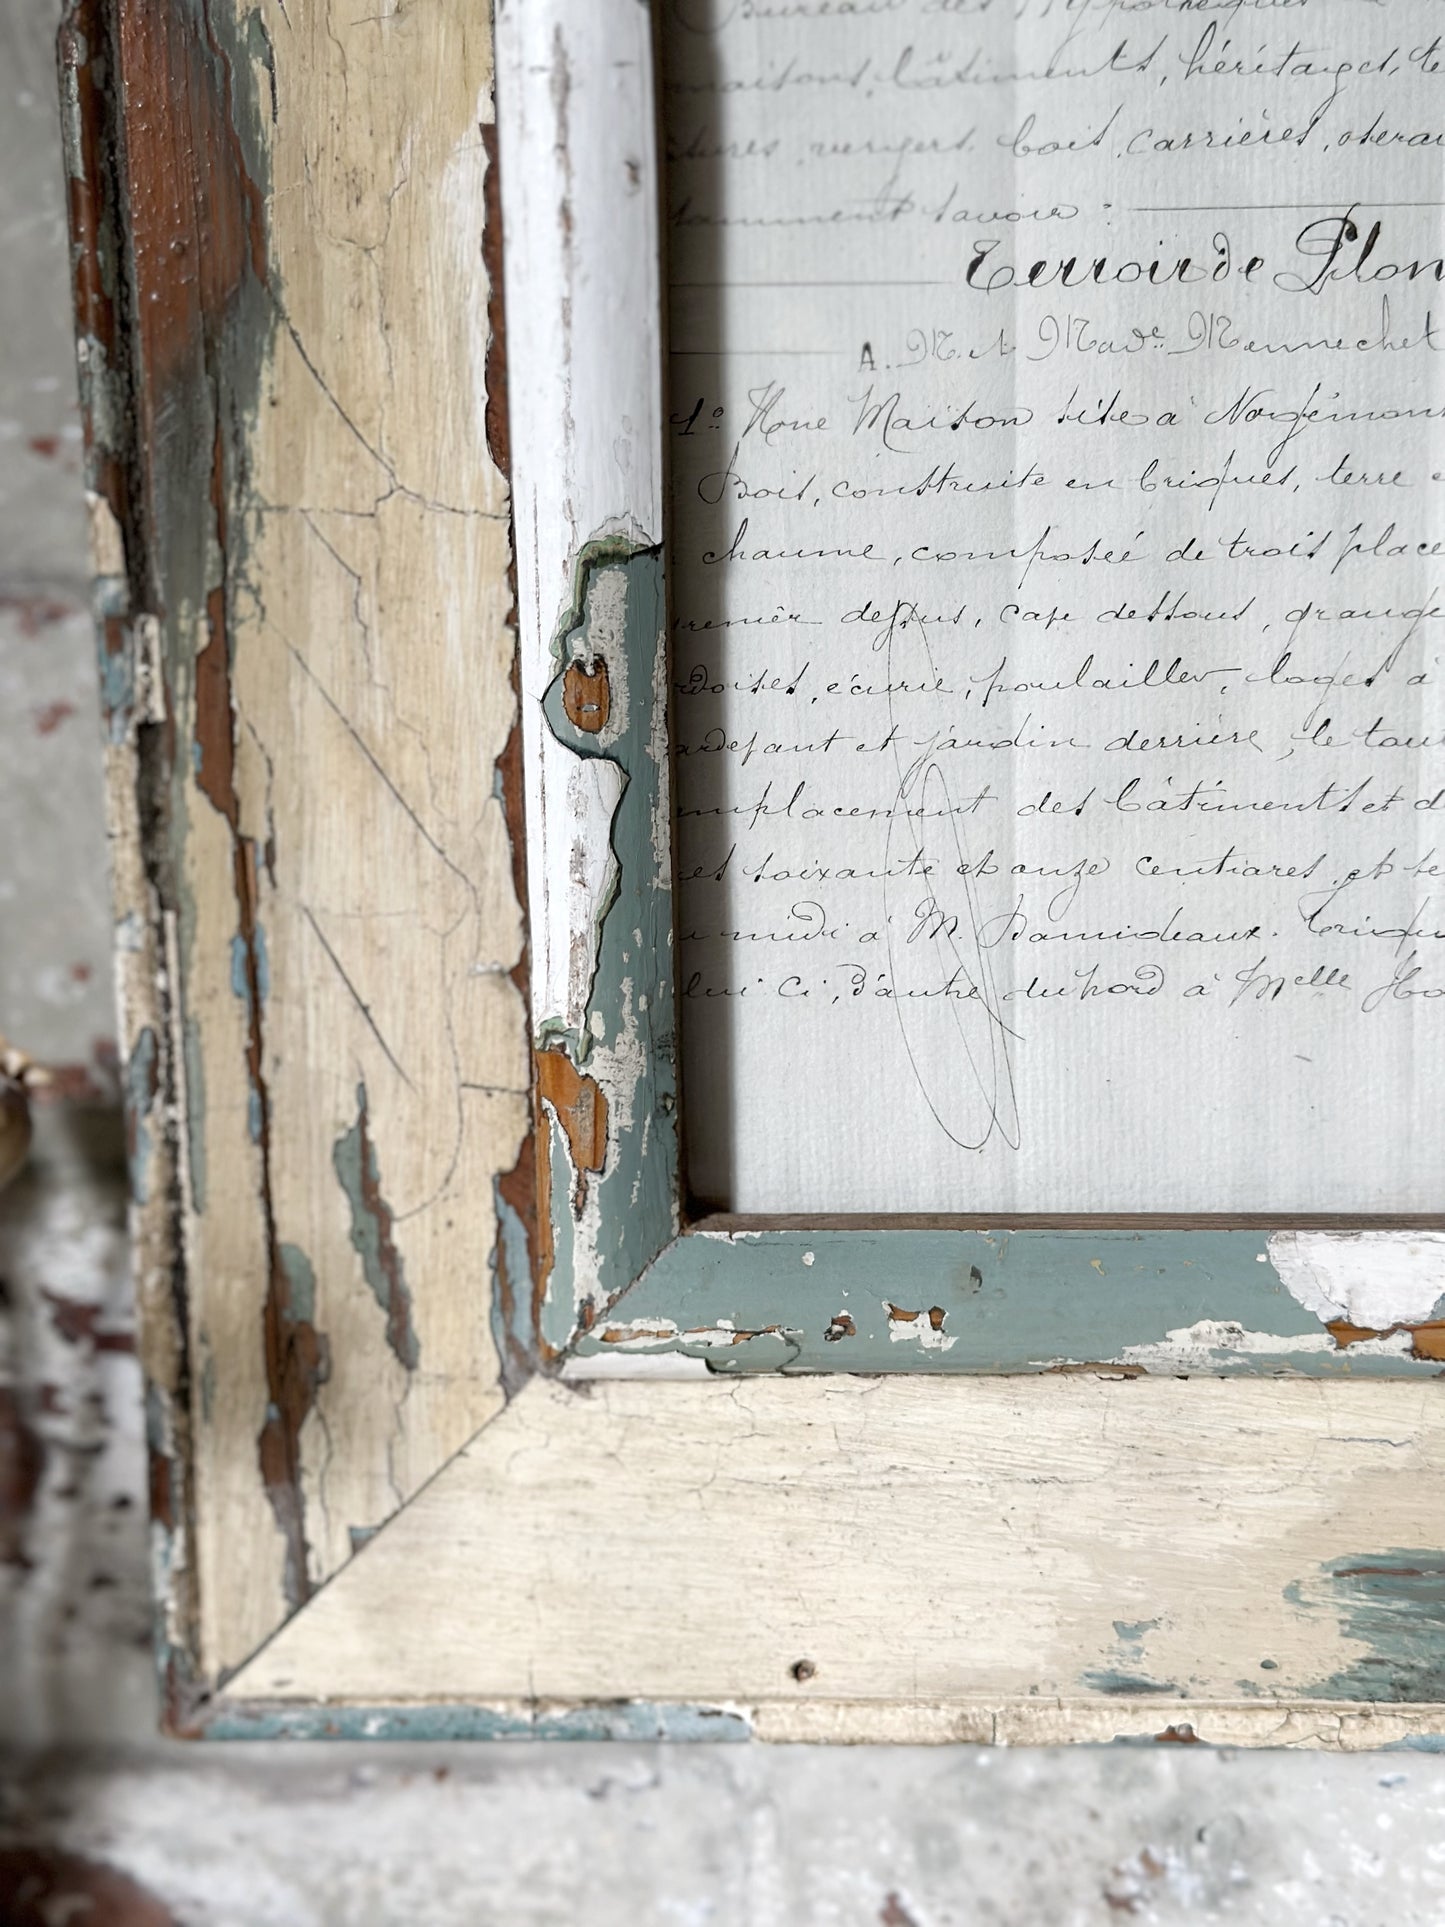 Bureau des Hypothèques
maisons, bâtiments, héritages, te
tures vergers, bois, carrières, oserai
tamment savoir :
Terroir de Plon
A. M. et Made Mennechet
1° Une Maison sise à Nogémont
Bois, construite en briques, terre e
chaume, composée de trois place
renier dessus, cave dessous, grange
rdoises, écurie, poulailler, loges à
ardevant et jardin derrière, le tout
emplacement des bâtiments et d
res soixante et onze centiares, et te
u midi à M. Damideaux
lui ci, d'autre du nord à Melle Ho